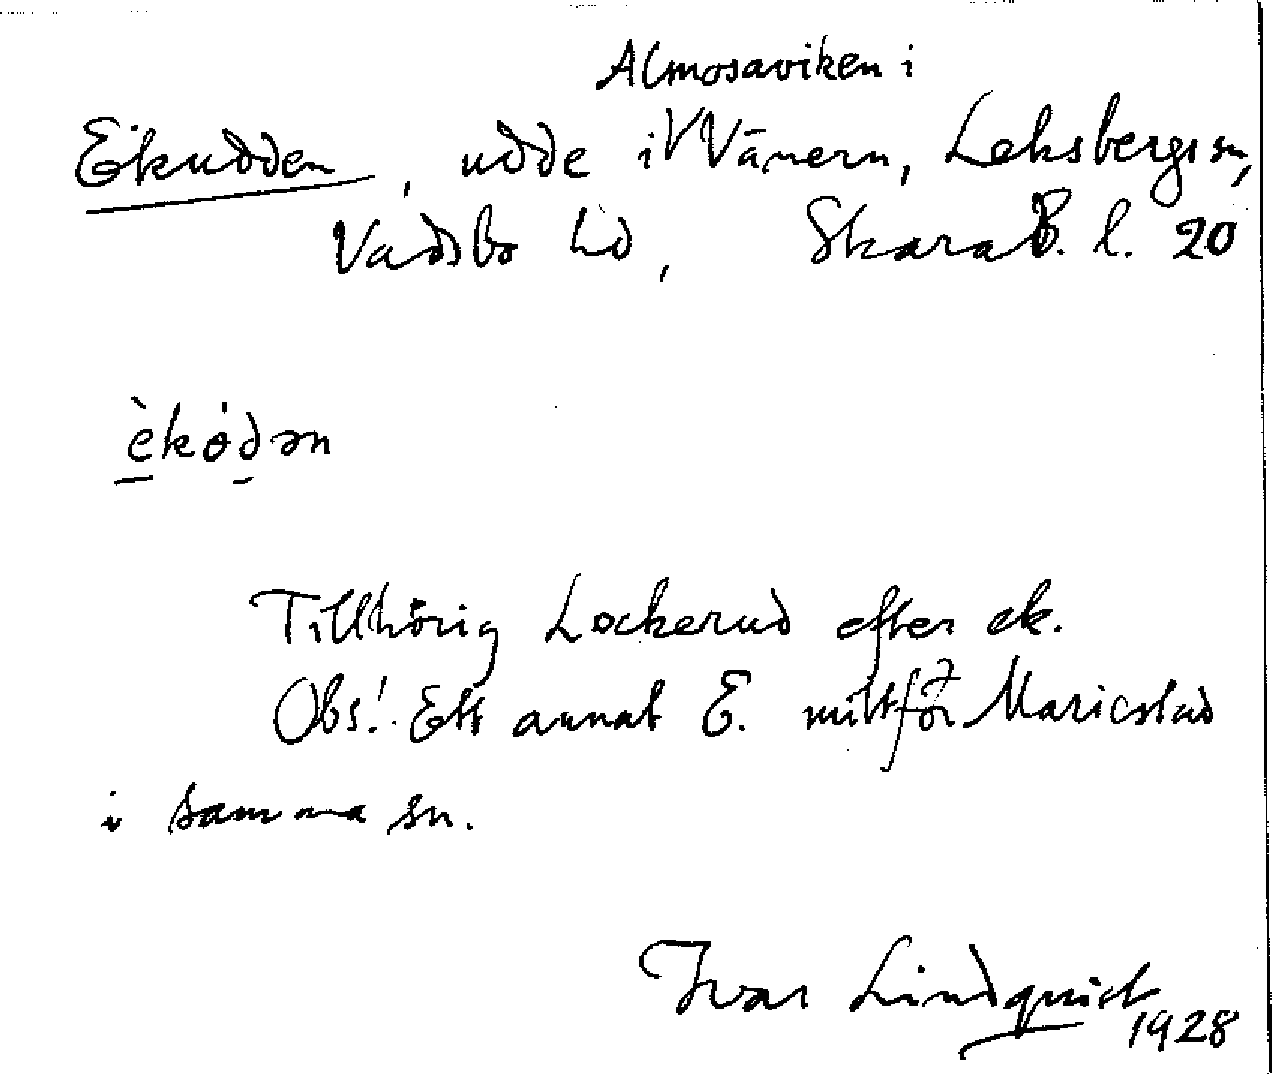 Almosaviken i
Ekudden, udde i V Vänern, Leksbergs sn,
Vadsbo hd, Skarab. l. 20
èkódən
Tillhörig Lockerud efter ek.
Obs! Ett annat E. mitt för Mariestad
i samma sn.
Ivar Lindquist
1928